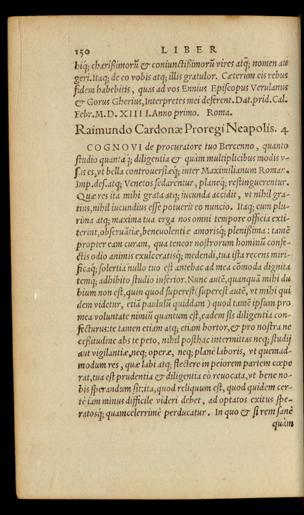 150 LIBER
hiq; charißimorũ & coniunctißimorũ vires atq; nomen au
geri. Itaq; de eo vobis atq; illis gratulor. Cæterum eis rebus
fidem habebitis, quas ad vos Ennius Episcopus Verulanus
& Gorus Gherius, Interpretes mei deferent. Dat. prid. Cal.
Febr. M. D. XIIII. Anno primo. Roma.
Raimundo Cardonæ Proregi Neapolis. 4
COGNOVI de procuratore tuo Bercenno, quanto
studio quantaq; diligentia & quàm multiplicibus modis v-
sus es, vt bella controuersiæq; inter Maximilianum Romar.
Imp. des. atq; Venetos sedarentur, planeq; restinguerentur.
Quæ res ita mihi grata atq; iucunda accidit, vt nihil gra-
tius, nihil iucundius esse potuerit eo nuncio. Itaq; cum plu-
rima atq; maxima tua erga nos omni tempore officia exti-
terint, obseruãtiæ, beneuolentiæ amorisq; plenißima: tamẽ
propter eam curam, qua tencor nostrorum hominũ confe-
ctis odio animis exulceratisq; medendi, tua ista recens miri-
ficaq; solertia nullo tuo est antehac ad mea cõmoda dignita
temq; adhibito studio inferior. Nunc autẽ, quanquã mihi du
bium non est, quin quod superest (superest autẽ, vt mihi qui
dem videtur, etiã paululũ quiddam) quod tamẽ ipsum pro
mea voluntate nimiũ quantum est, eadem sis diligentia con-
fecturus: te tamen etiam atq; etiam hortor, & pro nostra ne
ceßitudine abs te peto, nihil posthac intermittas neq; studij
aut vigilantiæ, neq; operæ, neq; planè laboris, vt quemad-
modum res, quæ labi atq; flectere in peiorem partem cœpe
rat, tua est prudentia & diligentia eò reuocata, vt bene no-
bis sperandum sit: ita, quod reliquum est, quod quidem cer-
tè iam minus difficile videri debet, ad optatos exitus spe-
ratosq; quamcelerrimè perducatur. In quo & si rem sanè
quàm